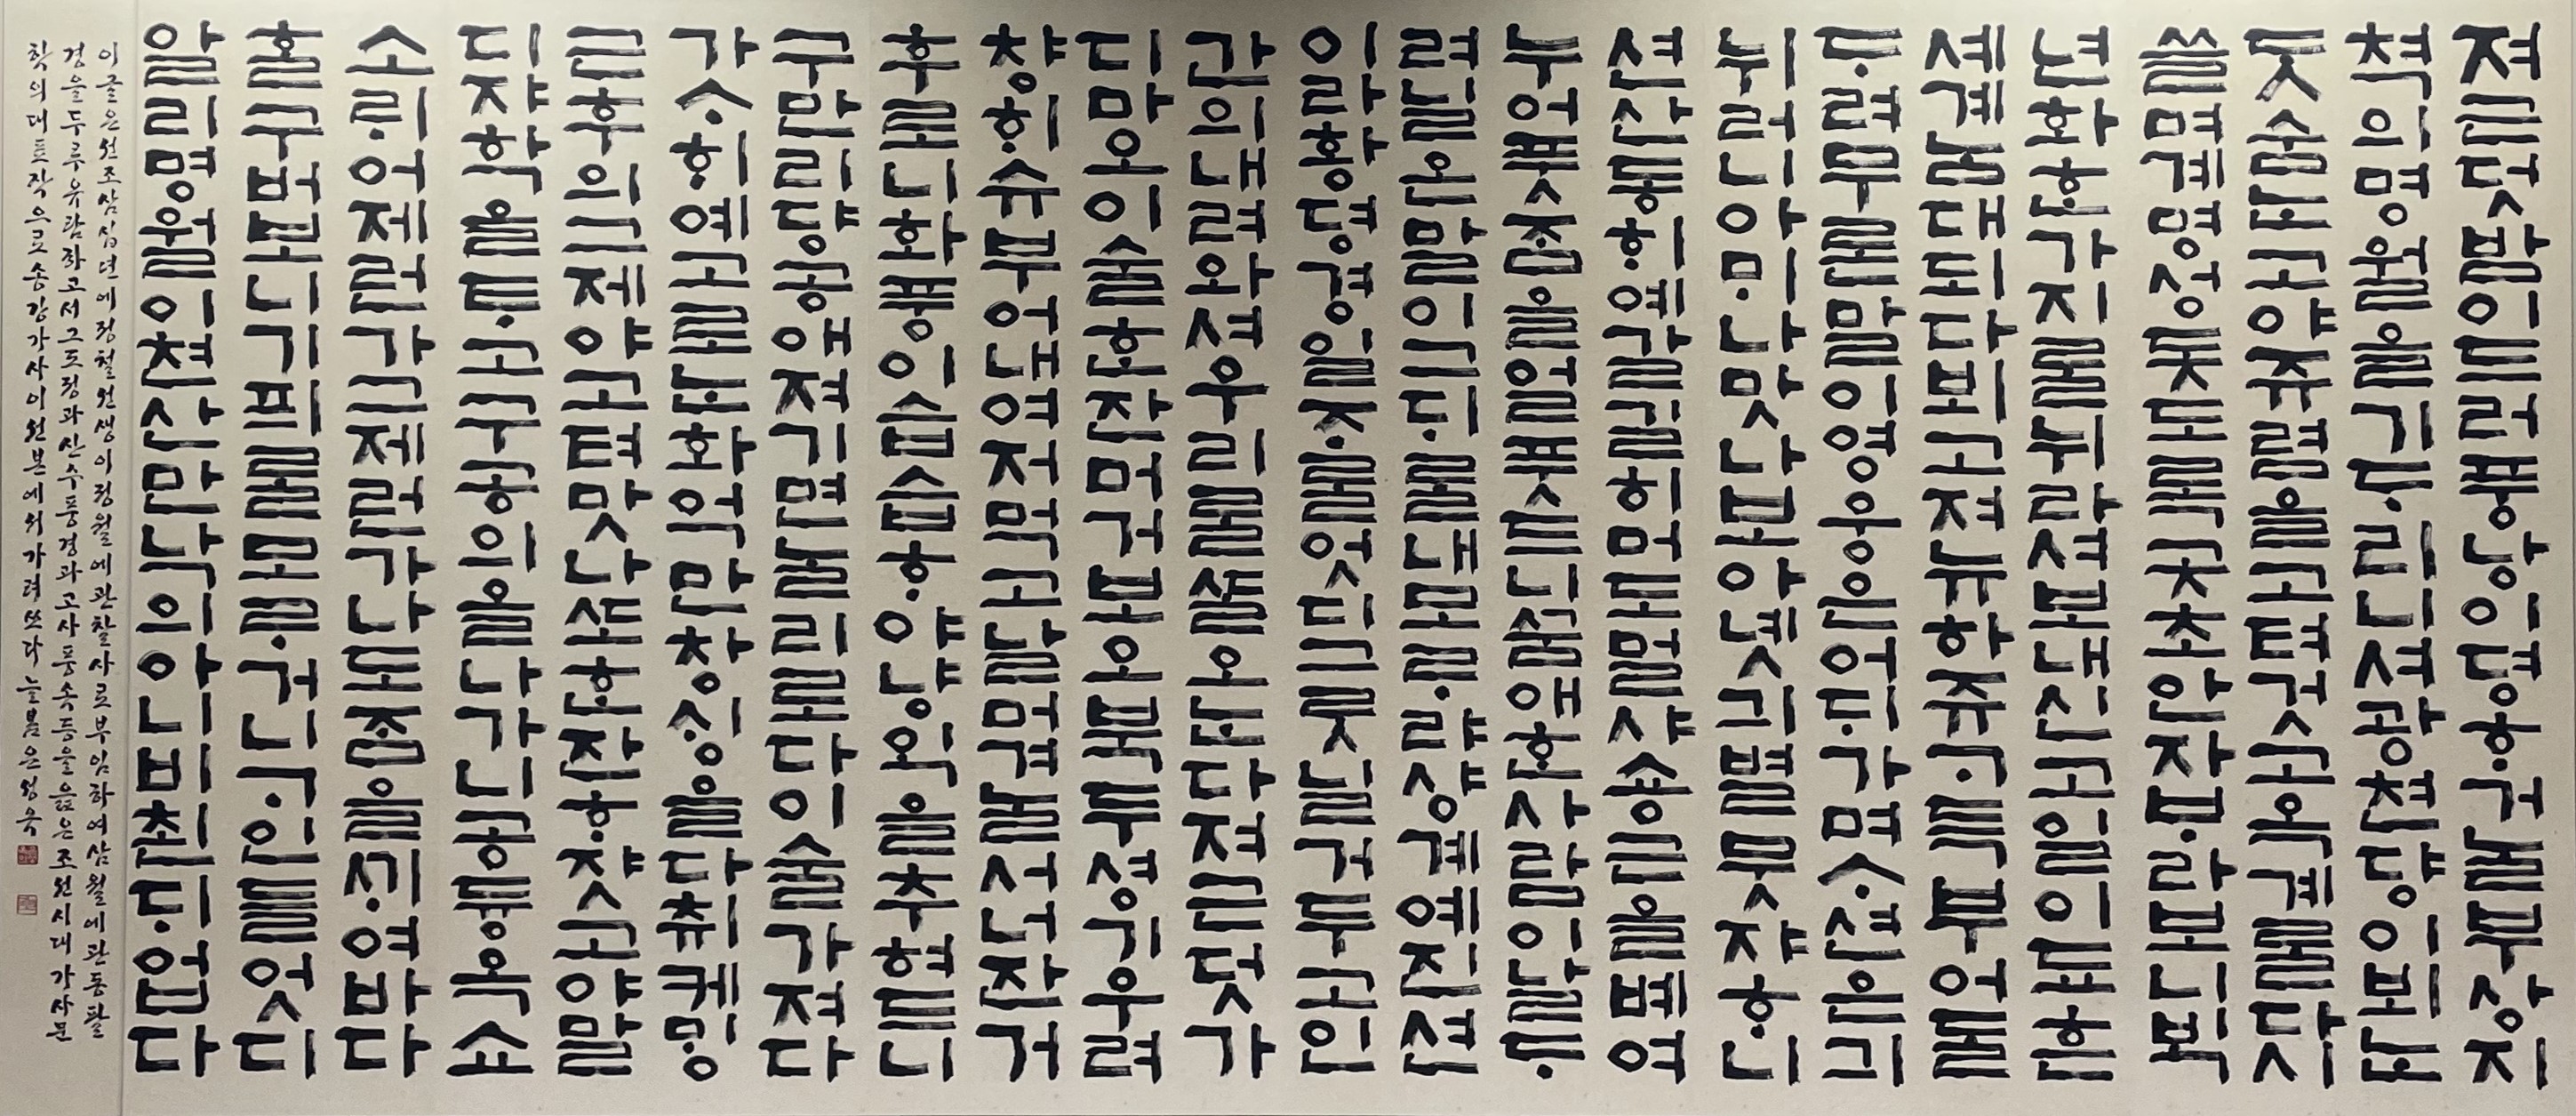 져근덧밤이드러풍낭이뎡ᄒᆞ거늘부상지
쳑의명월을기ᄃᆞ리니셔광쳔댱이뵈ᄂᆞᆫ
ᄃᆞᆺ숨ᄂᆞᆫ고야쥬렴을고텨것고옥계ᄅᆞᆯ다시
쓸며계명셩돗도록곳초안자ᄇᆞ라보니ᄇᆡᆨ
년화ᄒᆞᆫ가지ᄅᆞᆯ뉘라셔보내신고일이됴흔
셰계ᄂᆞᆷ대되다뵈고져뉴하쥬ᄀᆞ득부어ᄃᆞᆯ
ᄃᆞ려무론말이영웅은어ᄃᆡ가며ᄉᆞ션은긔
뉘러니아ᄆᆡ나맛나보아녯긔별뭇쟈ᄒᆞ니
션산동ᄒᆡ예갈길히머도멀샤숑근을베여
누어픗ᄌᆞᆷ을얼픗드니ᄭᅮᆷ애ᄒᆞᆫ사ᄅᆞᆷ이날ᄃᆞ
려닐온말이그ᄃᆡᄅᆞᆯ내모ᄅᆞ랴샹계예진션
이라황뎡경일ᄌᆞᄅᆞᆯ엇디그릇닐거두고인
간의내려와셔우리ᄅᆞᆯᄯᆞᆯ오ᄂᆞᆫ다져근덧가
디마오이술ᄒᆞᆫ잔머거보오븍두셩기우려
챵ᄒᆡ슈부어내여저먹고날머겨ᄂᆞᆯ서너잔거
후로니화풍이습습ᄒᆞ야냥익을추혀드니
구만리댱공애져기면ᄂᆞᆯ리로다이술가져다
가ᄉᆞᄒᆡ예고로ᄂᆞᆫ화억만창ᄉᆡᆼ을다취케ᄆᆡᆼ
근후의그제야고텨맛나ᄯᅩᄒᆞᆫ잔ᄒᆞ쟛고야말
디쟈학을ᄐᆞ고구공의올나가니공듕옥쇼
소ᄅᆡ어제런가그제런가나도ᄌᆞᆷ을ᄭᆡ여바다
ᄒᆞᆯ구버보니기픠ᄅᆞᆯ모ᄅᆞ거니ᄀᆞ인들엇디
알리명월이쳔산만낙의아니비쵠ᄃᆡ업다
이글은선조삼십년에정철선생이정월에관찰사로부임하여삼월에관동팔
경을두루유람하고서그도정과산수풍경과고사풍속등을읊은조선시대가사문
학의대표작으로송강가사이선본에서가려쓰다 늘봄은성옥